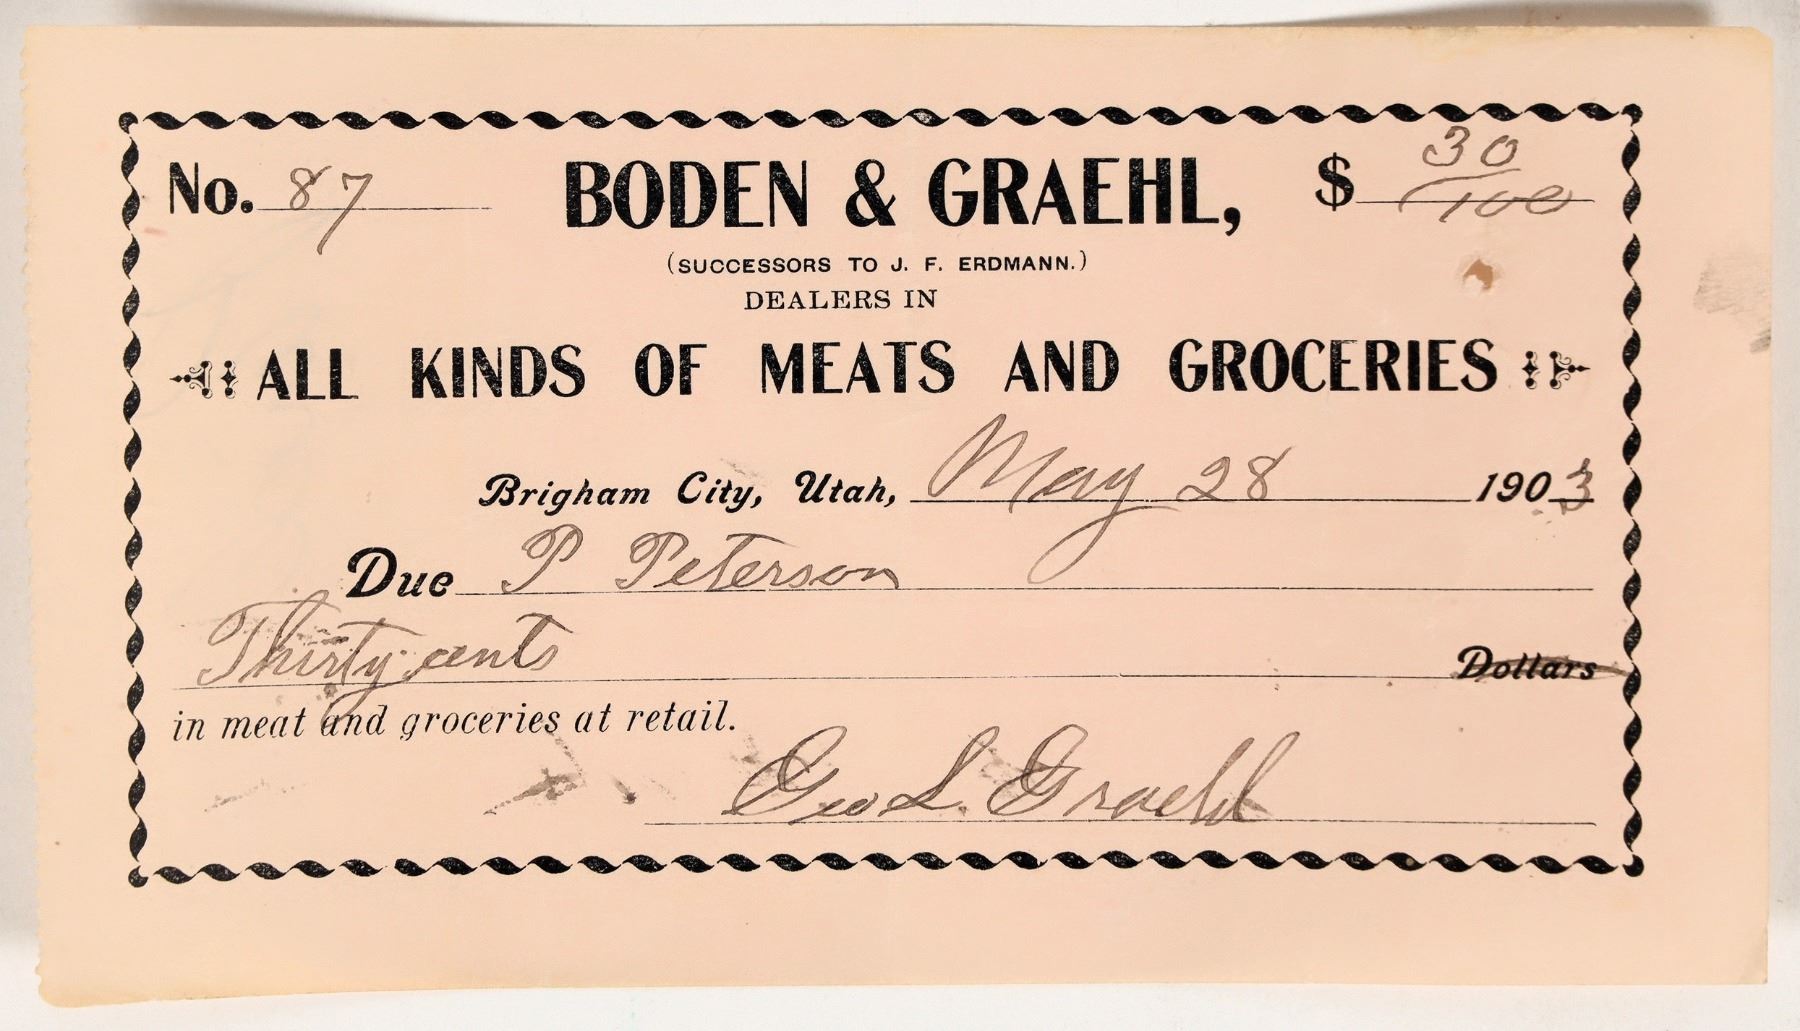 No. 87 BODEN & GRAEHL, $ 30/100
(SUCCESSORS TO J. F. ERDMANN.)
DEALERS IN
ALL KINDS OF MEATS AND GROCERIES
Brigham City, Utah, May 28 1903
Due P Peterson
Thirty cents Dollars
in meat and groceries at retail.
Geo L. Graehl